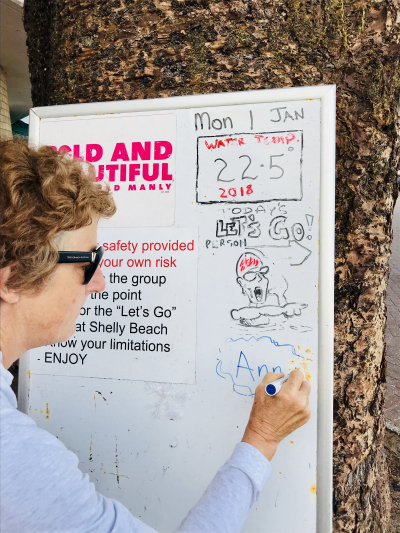 Mon 1 JAN
WATER TEMP.
22.5°
2018
TODAY'S
LET'S GO!
PERSON
Ann
LD AND
UTIFUL
D MANLY
safety provided
your own risk
the group
the point
or the "Let's Go"
at Shelly Beach
now your limitations
- ENJOY